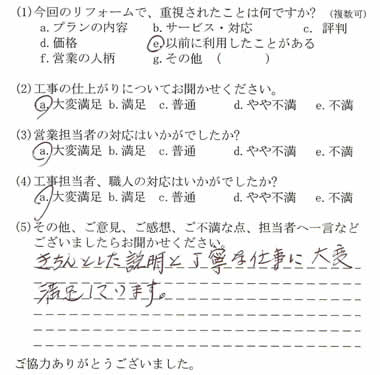 (1)今回のリフォームで、重視されたことは何ですか? (複数可)
a.プランの内容 b.サービス・対応 c. 評判
d.価格 e.以前に利用したことがある
f.営業の人柄 g.その他 ( )
(2)工事の仕上がりについてお聞かせください。
a.大変満足 b.満足 c.普通 d.やや不満 e.不満
(3)営業担当者の対応はいかがでしたか?
a.大変満足 b.満足 c.普通 d.やや不満 e.不満
(4)工事担当者、職人の対応はいかがでしたか?
a.大変満足 b.満足 c.普通 d.やや不満 e.不満
(5)その他、ご意見、ご感想、ご不満な点、担当者へ一言など
ございましたらお聞かせください。
きちんとした説明と丁寧な仕事に大変
満足しています。
ご協力ありがとうございました。